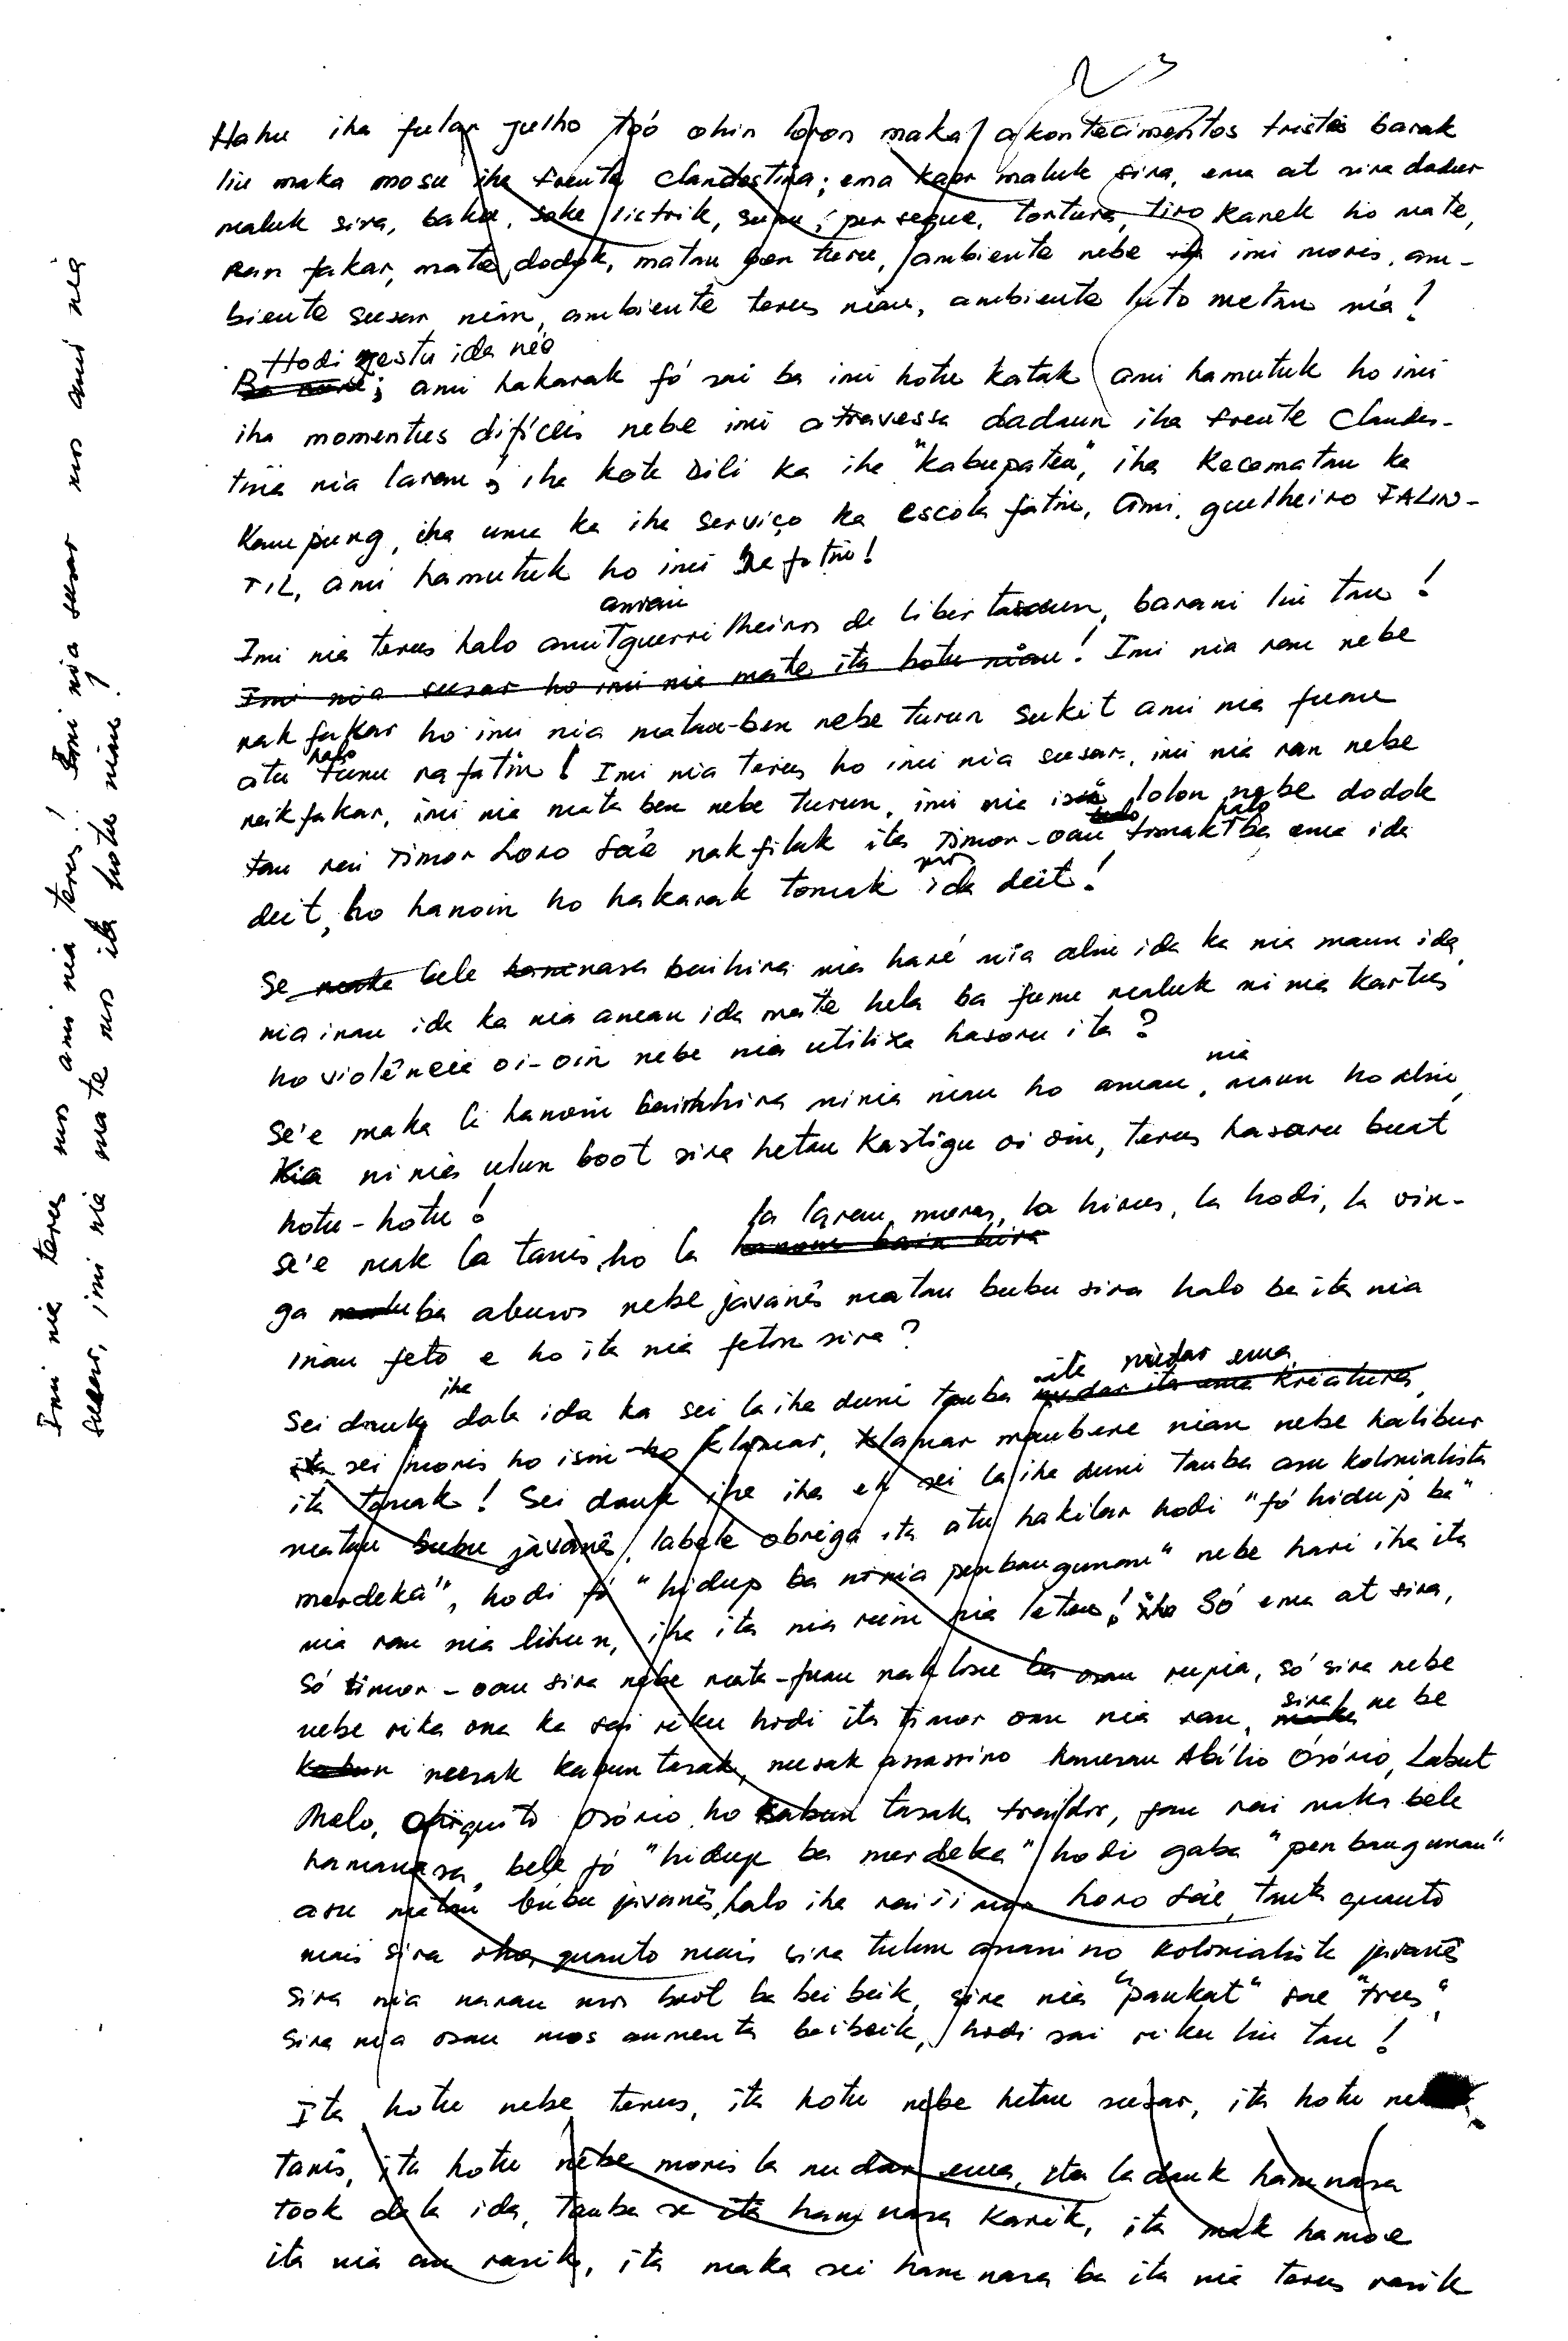 Hahu iha fulan Julho too ohin loron maka akontecimentos tristes barak
liu maka mosu iha frente Clandestina; ema kaer maluk sira, ema at sira dadur
maluk sira, baku, soke lictrik, sunu, persegue, tortura, tiro kanek ho mate,
Ran fakar, mate dodok, matan ben turu, ambiente nebe imi moris, am-
biente susar nian, ambiente terus nian, ambiente luto metan nia!
Hodi gestu ida neé
; ami hakarak fó sai ba imi hotu katak ami hamutuk ho imi
iha momentus difíceis nebe imi atravessa dadaun iha frente Clandes-
tina nia laran; iha kota Dili ka iha "kabupaten", iha Kecamatan ka
Kampung, iha uma ka iha serviço ka escola fatin, ami, guelheiro FALIN-
TIL, ami hamutuk ho imi nafatin!
amian
Imi nia terus halo ami guerrilheiros de libertasaun, barani liu tan!
Imi nia susar ho imi nia mate ita hotu nian! Imi nia ran nebe
nakfakar ho imi nia matan-ben nebe turun sukit ami nia funu
halo
atu funu nafatin! Imi nia terus ho imi nia susar, imi nia ran nebe
nakfakar, imi nia mata ben nebe turun, imi nia isin lolon nebe dodok
halo
tan rai Timor Loro Sa'e nakfilak ita Timor-oan tomak ba ema ida
deit, ho hanoin ho hakarak tomak ida deit!
Se bele hamnasa bainhira nia haré nia alin ida ka nia maun ida,
nia inan ida ka nia aman ida mate hela ba funu maluk ni nia kartus
ho violência oi-oin nebe nia utiliza hasoru ita?
nia
Se'e maka la hanoin bainhira ninia inan ho aman, maun ho alin,
nia ni nia ulun boot sira hetan kastigu oi oin, terus hasoru buat
hotu-hotu!
la laran moras, la hirus, la hodi, la vin-
Se'e mak la tanis, ho la hanoin bain hira
ga ba abusos nebe javanês matan bubu sira halo ba ita nia
inan feto e ho ita nia feton sira?
iha ita nudar ema
Sei dauk dala ida ka sei la iha duni tanba nudar ita ema kriatura,
ita sei moris ho isin ho klamar, klamar maubere nian nebe halibur
ita tomak! Sei dauk iha iha eh sei la iha duni tanba asu kolonialista
matan bubu javanês, labele obriga ita atu hakilar hodi "fó hidup ba"
merdeka", hodi fó "hidup ba ninia penbangunan" nebe hari iha ita
nia ran nia lihun, iha ita nia ruin nia leten! Só ema at sira,
só timor-oan sira nebe mata-fuan nakloke ba osan rupia, só sira nebe
sira
nebe riku ona ka sai riku hodi ita timor oan nia ran, maka nebe
neerak kabun tasak, neesak assassino hanesan Abílio Osório, Labut
Melo, Augusto Osório ho kabun tasak traidor, fan rai maka bele
hamanasa, bele fó "hidup ba merdeka" hodi gaba "penbangunan"
asu matan bubu javanês, halo iha rai Timor Loro Sa'e, tanta quanto
mais sira quanto mais sira tulun assassino kolonialista javanês
sira nia naran mos boot ba bei beik, sira nia "pankat" sae "trus",
sira nia osan mos aumenta beibeik, hodi sai riku liu tan!
Ita hotu nebe terus, ita hotu nebe hetan susar, ita hotu
tanis, ita hotu nebe moris la nudar ema, ita ladauk hamnasa
took dala ida, tanba se ita hamnasa karik, ita mak hamoe
ita nia an rasik, ita maka sei hamnasa ba ita nia terus rasik
Imi nia terus mos ami nia terus! Imi nia susar mos ami nia
susar, imi nia mate mos ita hotu nian!